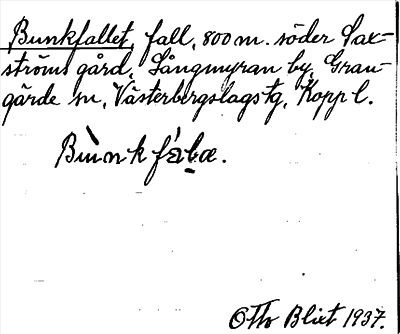 Bunkfallet, fall, 800 m. söder Sax-
ströms gård, Långmyran by, Gran-
gärde sn, Västerbergslags tg, Kopp l.
Otto Blixt 1937.